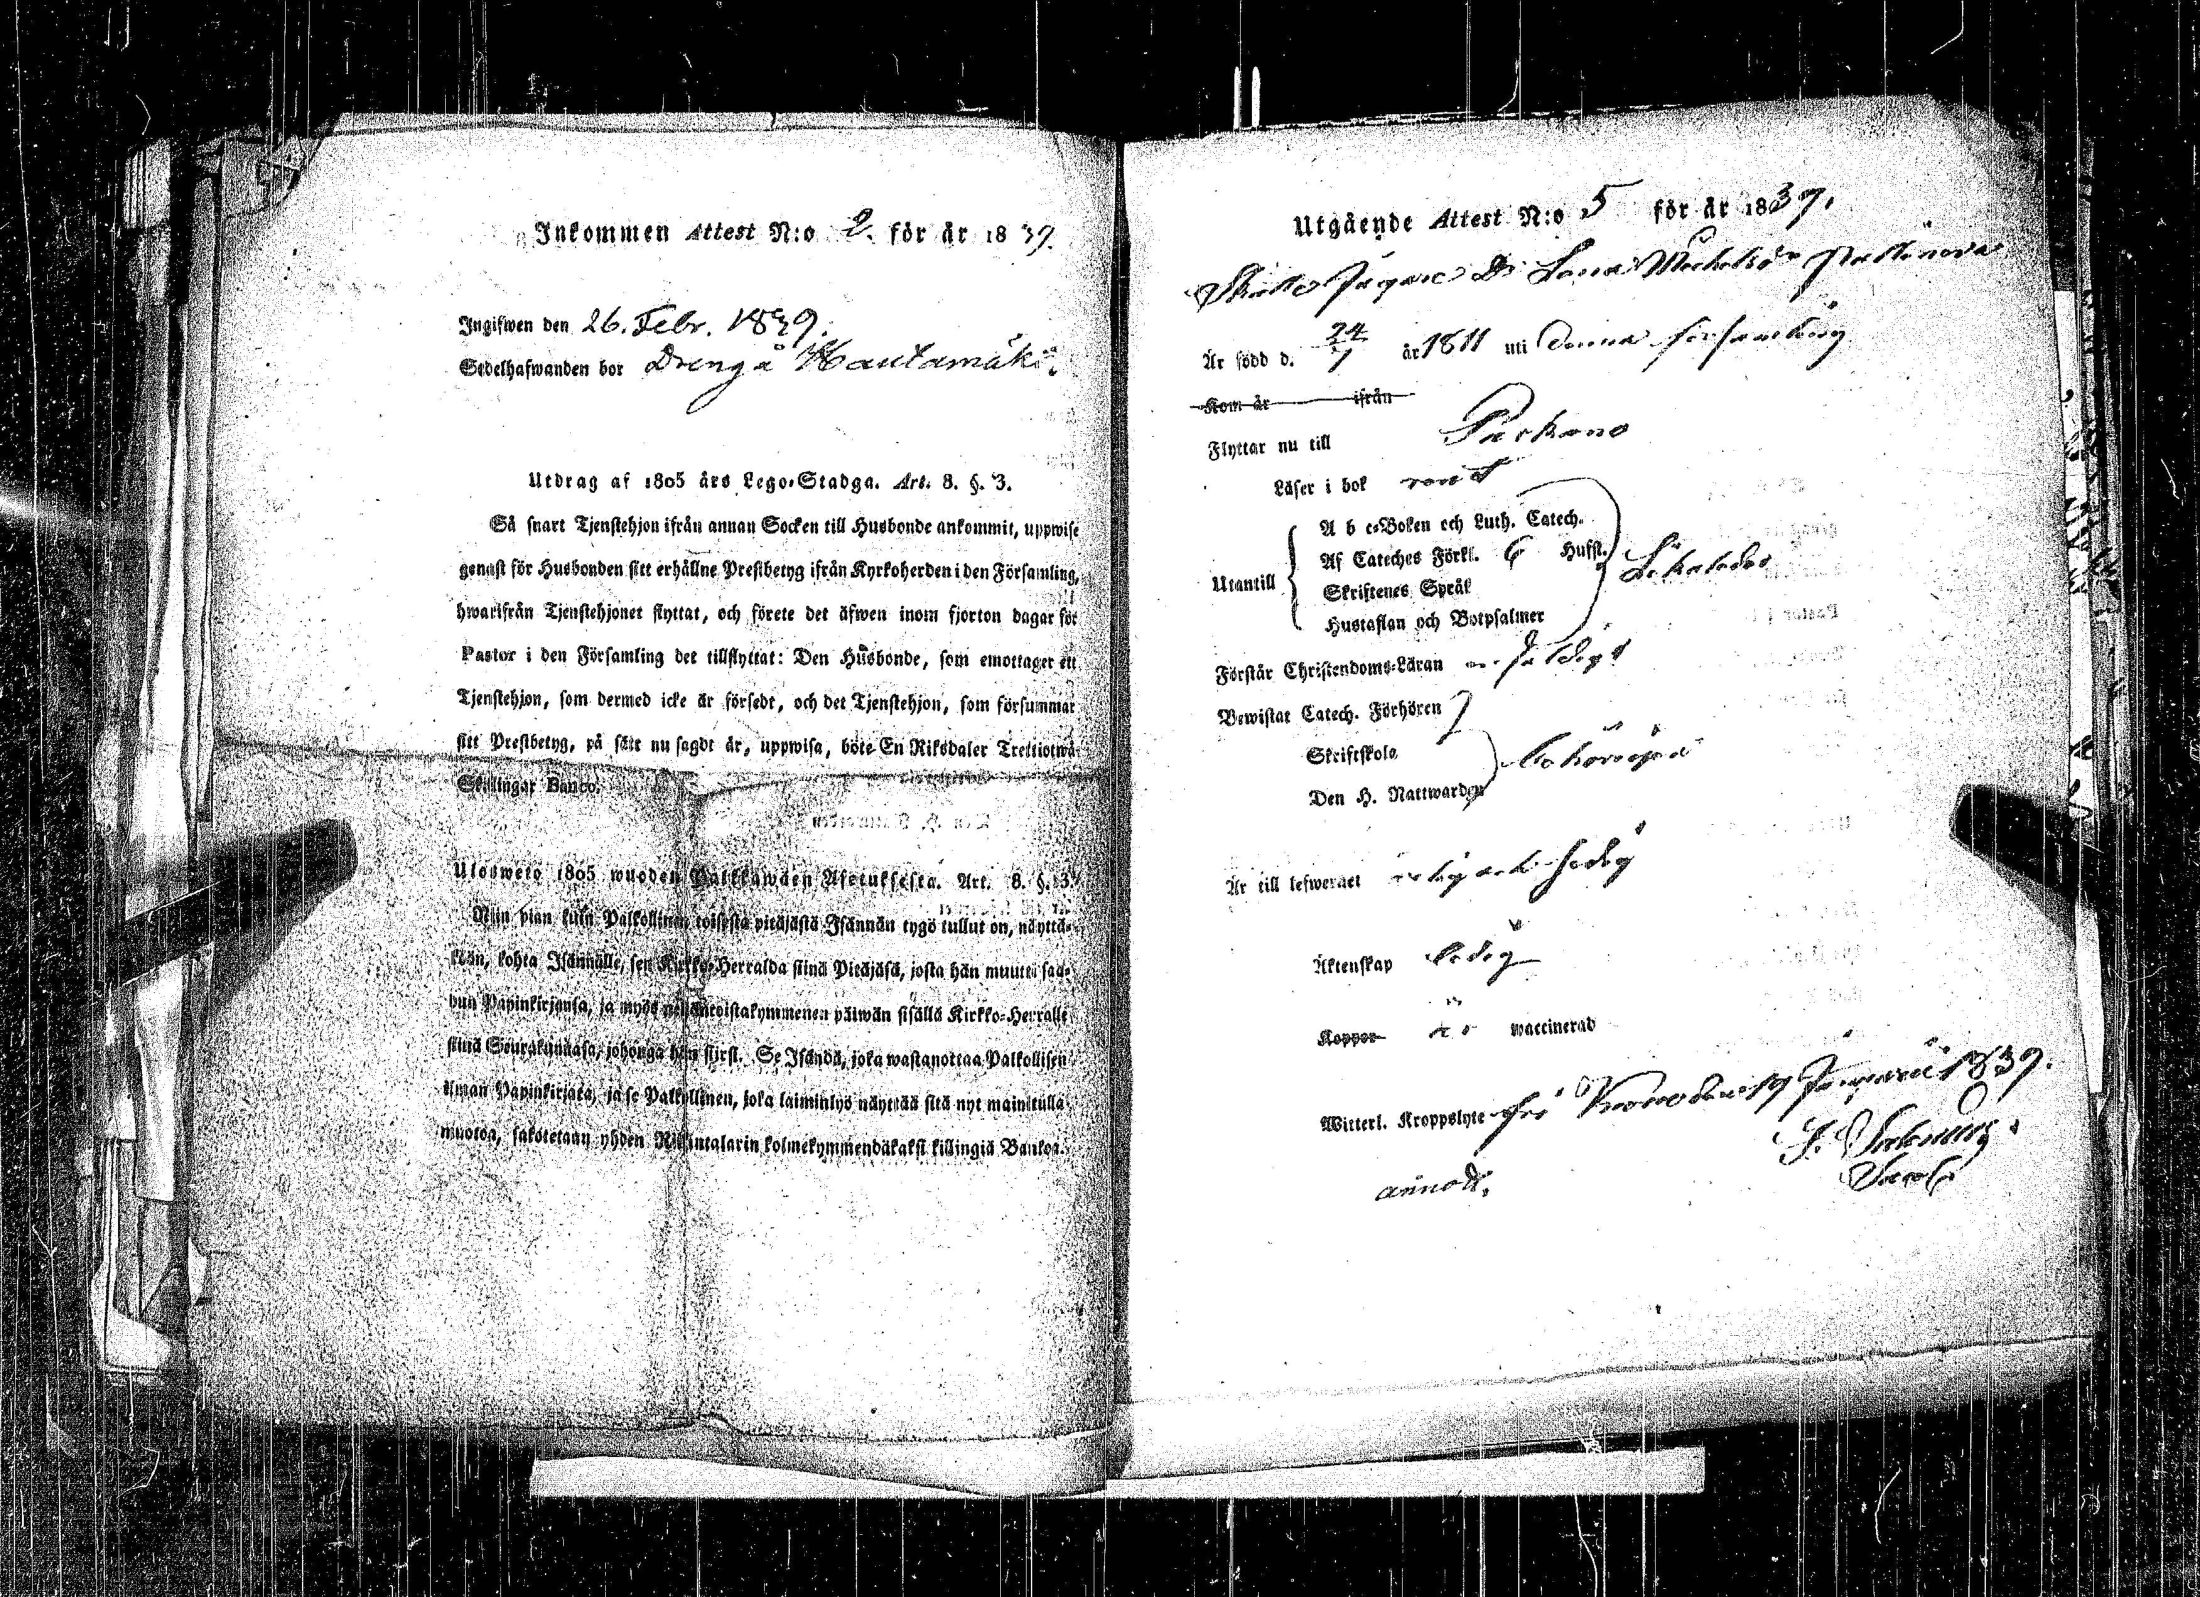 Inkommen Attest N:o 2. för år 1839.
Ingifwen den 26. Febr. 1839.
Sedelhafwanden bor Dreng å Hautamäki.
Utdrag af 1805 års Lego-Stadga. Art. 8. §. 3.
Så snart Tjenstehjon ifrån annan Socken till Husbonde ankommit, uppwise
genast för Husbonden sitt erhållne Prestbetyg ifrån Kyrkoherden i den Församling,
hwarifrån Tjenstehjonet flyttat, och förete det äfwen inom fjorton dagar för
Pastor i den Församling det tillflyttat: Den Husbonde, som emottager ett
Tjenstehjon, som dermed icke är försedt, och det Tjenstehjon, som försummar
sitt Prestbetyg, på sätt nu sagdt är, uppwisa, böte En Riksdaler Trettiotwå
Skillingar Banco.
Ulosweto 1805 wuoden Palkkawäen Asetuksesta. Art. 8. §. 3.
Niin pian kuin Palkollinen toisesta pitäjästä Isännän tygö tullut on, näyttä-
kään, kohta Isännälle, sen Kirkko-Herralda siinä Pitäjäsä, josta hän muutti saa-
dun Papinkirjansa, ja myös neljäntoistakymmenen päiwän sisällä Kirkko-Herralle
siinä Seurakunnasa, johonga hän siirsi. Se Isändä, joka wastanottaa Palkollisen
ilman Papinkirjata, ja se Palkollinen, joka laiminlyö näyttää sitä nyt mainitulla
muotoa, sakotetaan yhden Riksintalarin kolmekymmendäkaksi killingiä Bankoa.
Utgående Attest N:o 5 för år 1839.
Är född d. 24/7 år 1811 uti denna församling
Kom år ifrån
Flyttar nu till Parkano
Läser i bok rent
Utantill
A b c-Boken och Luth. Catech.
Af Cateches Förkl. 6 Hufst.
Skriftenes Språk
Hustaflan och Botpsalmer
Förstår Christendoms-Läran enfaldigt
Bewistat Catech. Förhören
Skriftskola
Den H. Nattwarden
behörigen
Är till lefwernet ärlig och sedig
Äktenskap ledig
Koppor är waccinerad
Witterl. Kroppslyte fri den 19 Januarii 1839.